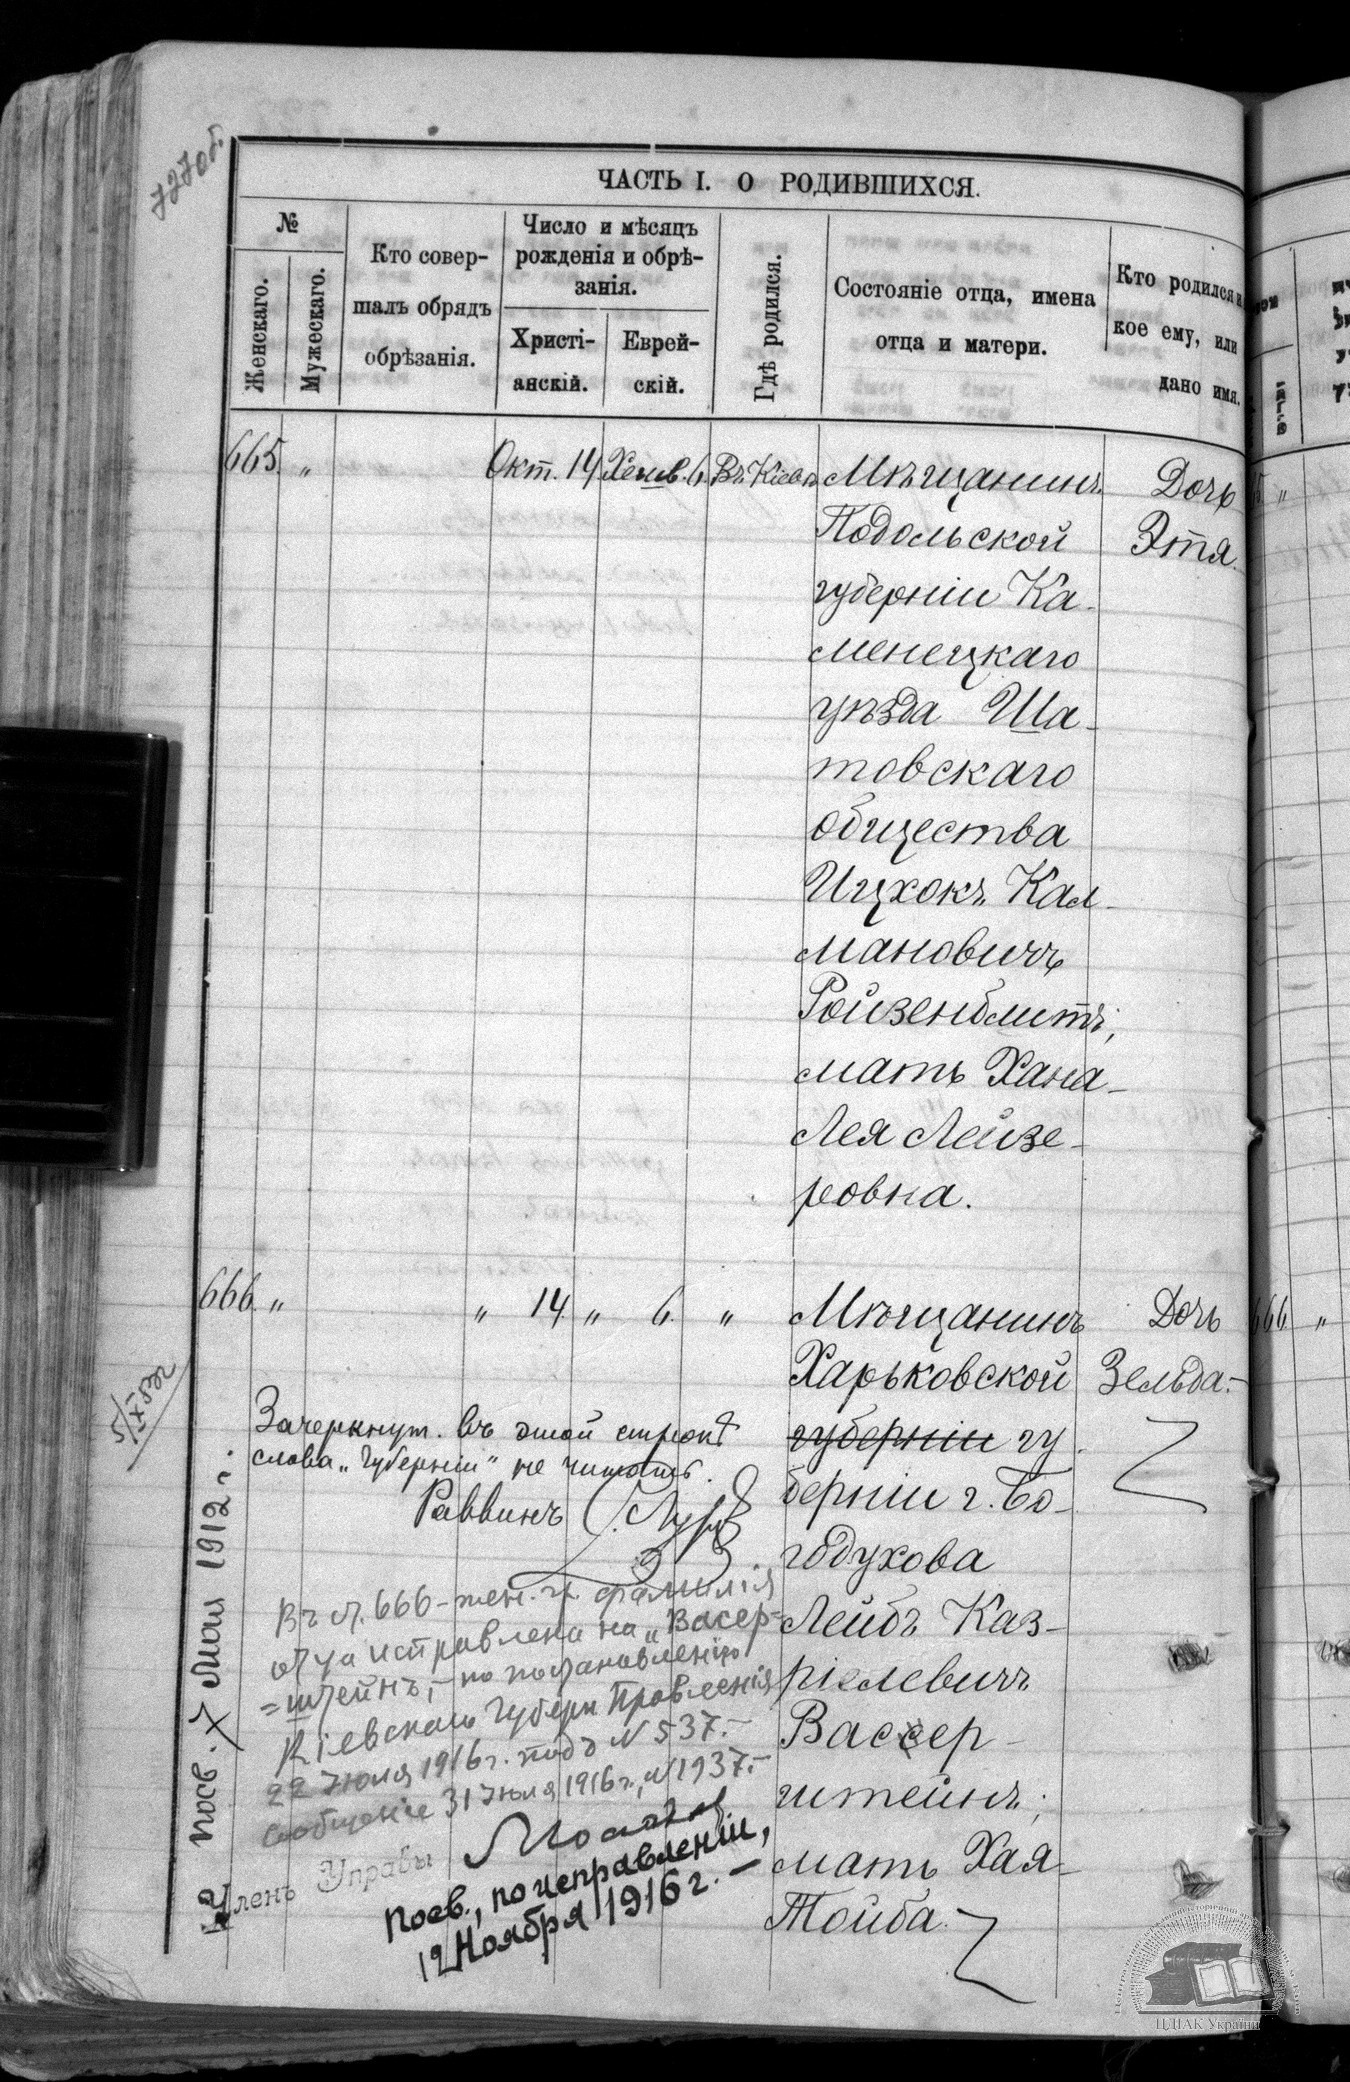 7270б.
ЧАСТЬ I. О РОДИВШИХСЯ.
№
Женскаго.
Мужескаго.
Кто совер-
шалъ обрядъ
обрѣзанія.
Число и мѣсяцъ
рожденія и обрѣ-
занія.
Христі-
анскій.
Еврей-
скій.
Гдѣ родился.
Состояніе отца, имена
отца и матери.
Кто родился и
кое ему, или
дано имя.
665. „ Окт. 14 Хешв. 6. Въ Кіевѣ
Мѣщанинъ
Подольской
губерніи Ка-
менецкаго
уѣзда Ша-
товскаго
общества
Ицхокъ Кал-
мановичъ
Ройзенблитъ;
мать Хана-
Лея Лейзе-
ровна.
Дочь
Этя.
666. „ „ 14. „ 6. „
Мѣщанинъ
Харьковской
губерніи гу-
берніи г. Бо-
годухова
Лейбъ Каз-
ріелевичъ
Вассер-
штейнъ;
мать Хая-
Тойба.
Дочь
Зельда.-
Зачеркнут. въ этой строкѣ
слова „губерніи" не читать.
Раввинъ
Въ ст. 666-жен. ч. фамилія
отца исправлена на „Васер=
=штейнъ",- по постановленію
Кіевскаго Губерн Правленія
22 Іюля 1916 г. подъ N 537.-
Сообщеніе 31 Іюля 1916 г., N 1937.-
Членъ Управы
Посв., по исправленіи,
12 Ноября 1916 г. -
Посв. 7 Мая 1912 г.
5/IX 522
665. „
666. „
ЦДІАК України